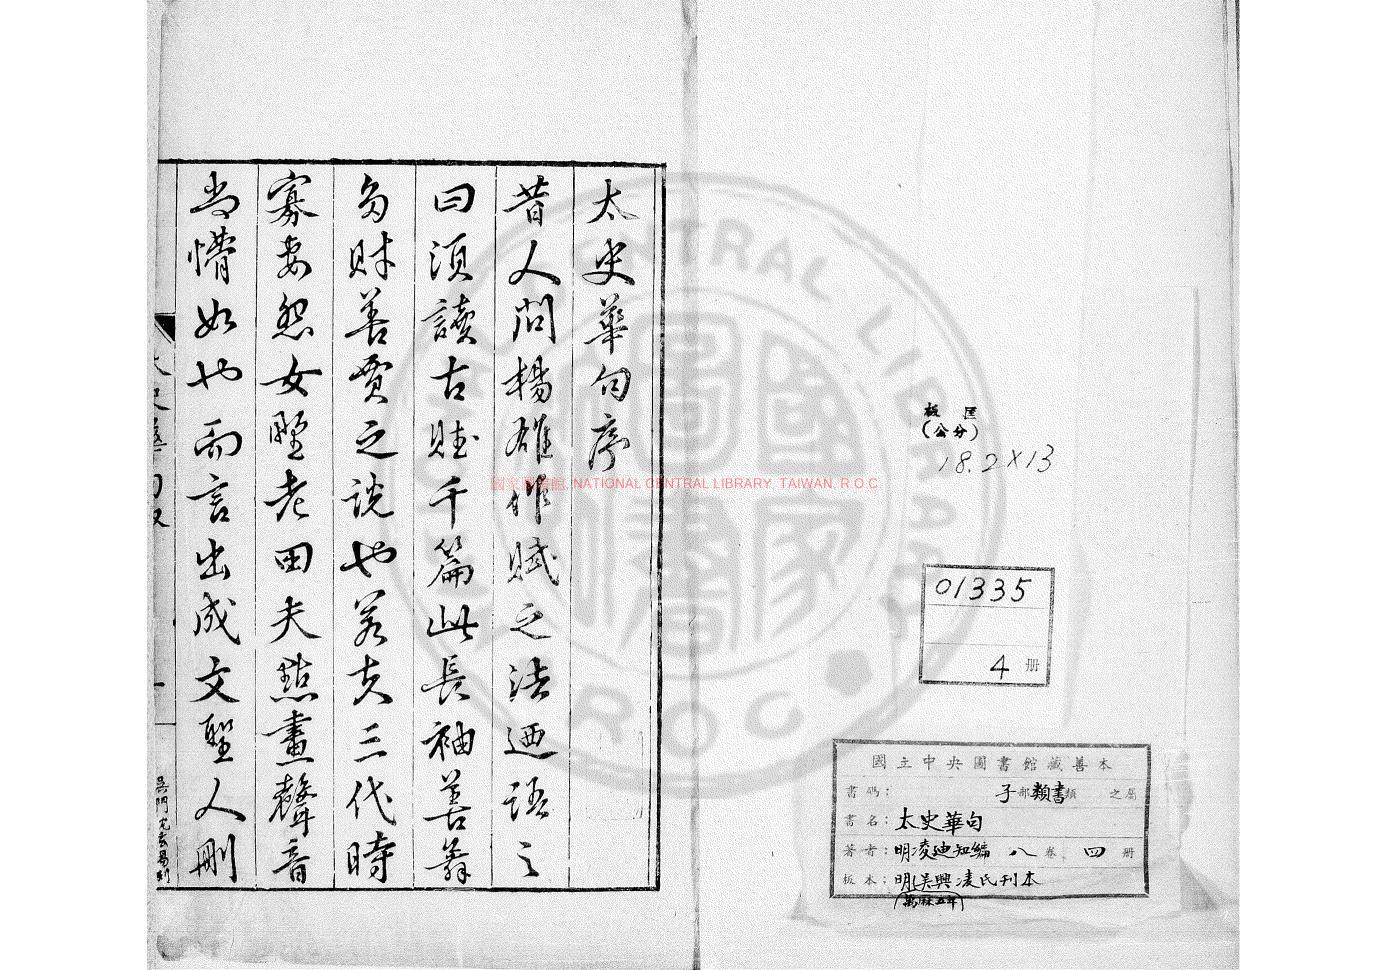 板匡
(公分)
18.2×13
01335
4 冊
國立中央圖書館藏善本
書碼： 子部類書類 之屬
書名：太史華句
著者：明凌迪知編 八卷 四冊
板本：明吳興凌氏刊本
(萬厤五年)
太史華句序
昔人問揚雄作賦之法迺語之
曰須讀古賦千篇此長袖善舞
多財善賈之說也若夫三代時
寡妻怨女野老田夫點畫聲音
尚懵如也而言出成文聖人刪
太史華句敘
吳門沈玄易刻
國家圖書館, NATIONAL CENTRAL LIBRARY, TAIWAN, R O C
CENTRAL LIBRARY
ROC